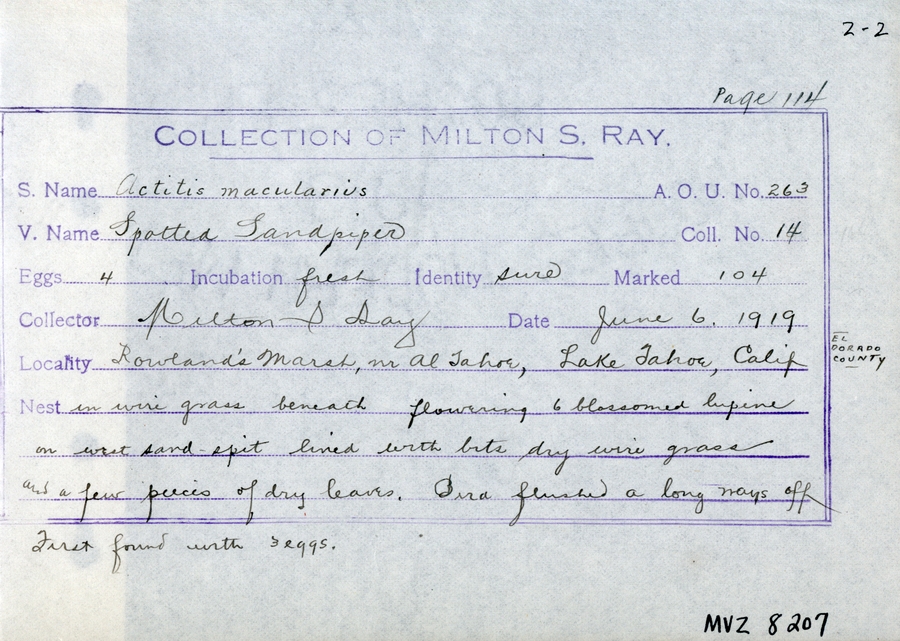 2-2
Page 114
COLLECTION OF MILTON S. RAY.
S. Name Actitis macularius A. O. U. No. 263
V. Name Spotted Sandpiper Coll. No. 14
Eggs 4 Incubation fresh Identity sure Marked 104
Collector Milton S Ray Date June 6. 1919
Locality Rowland's Marsh, nr Al Tahoe, Lake Tahoe, Calif
EL DORADO COUNTY
Nest in wire grass beneath flowering 6 blossomed lupine
on west sand-spit lined with bits dry wire grass
and a few pieces of dry leaves. Bird flushed a long ways off
First found with 3 eggs.
MVZ 8207